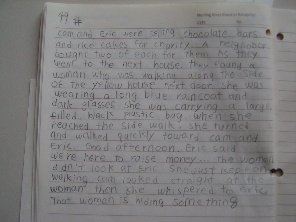 99 #
Cam and Eric were selling chocolate bars
and rice cakes for charity. A neighbor
bought two of each for them. As they
went to the next house, they found a
woman who was walking along the side
of the yellow house next door. She was
wearing a long blue raincoat and
dark glasses she was carrying a large
filled black plastic bag when she
reached the side walk, she turned
and walked quickly toward cam and
Eric. Good afternoon, Eric said
we're here to raise money... The woman
didn't look at Eric. She just kept on
walking cam looked straight at the
woman then she whispered to Eric,
That woman is hiding something